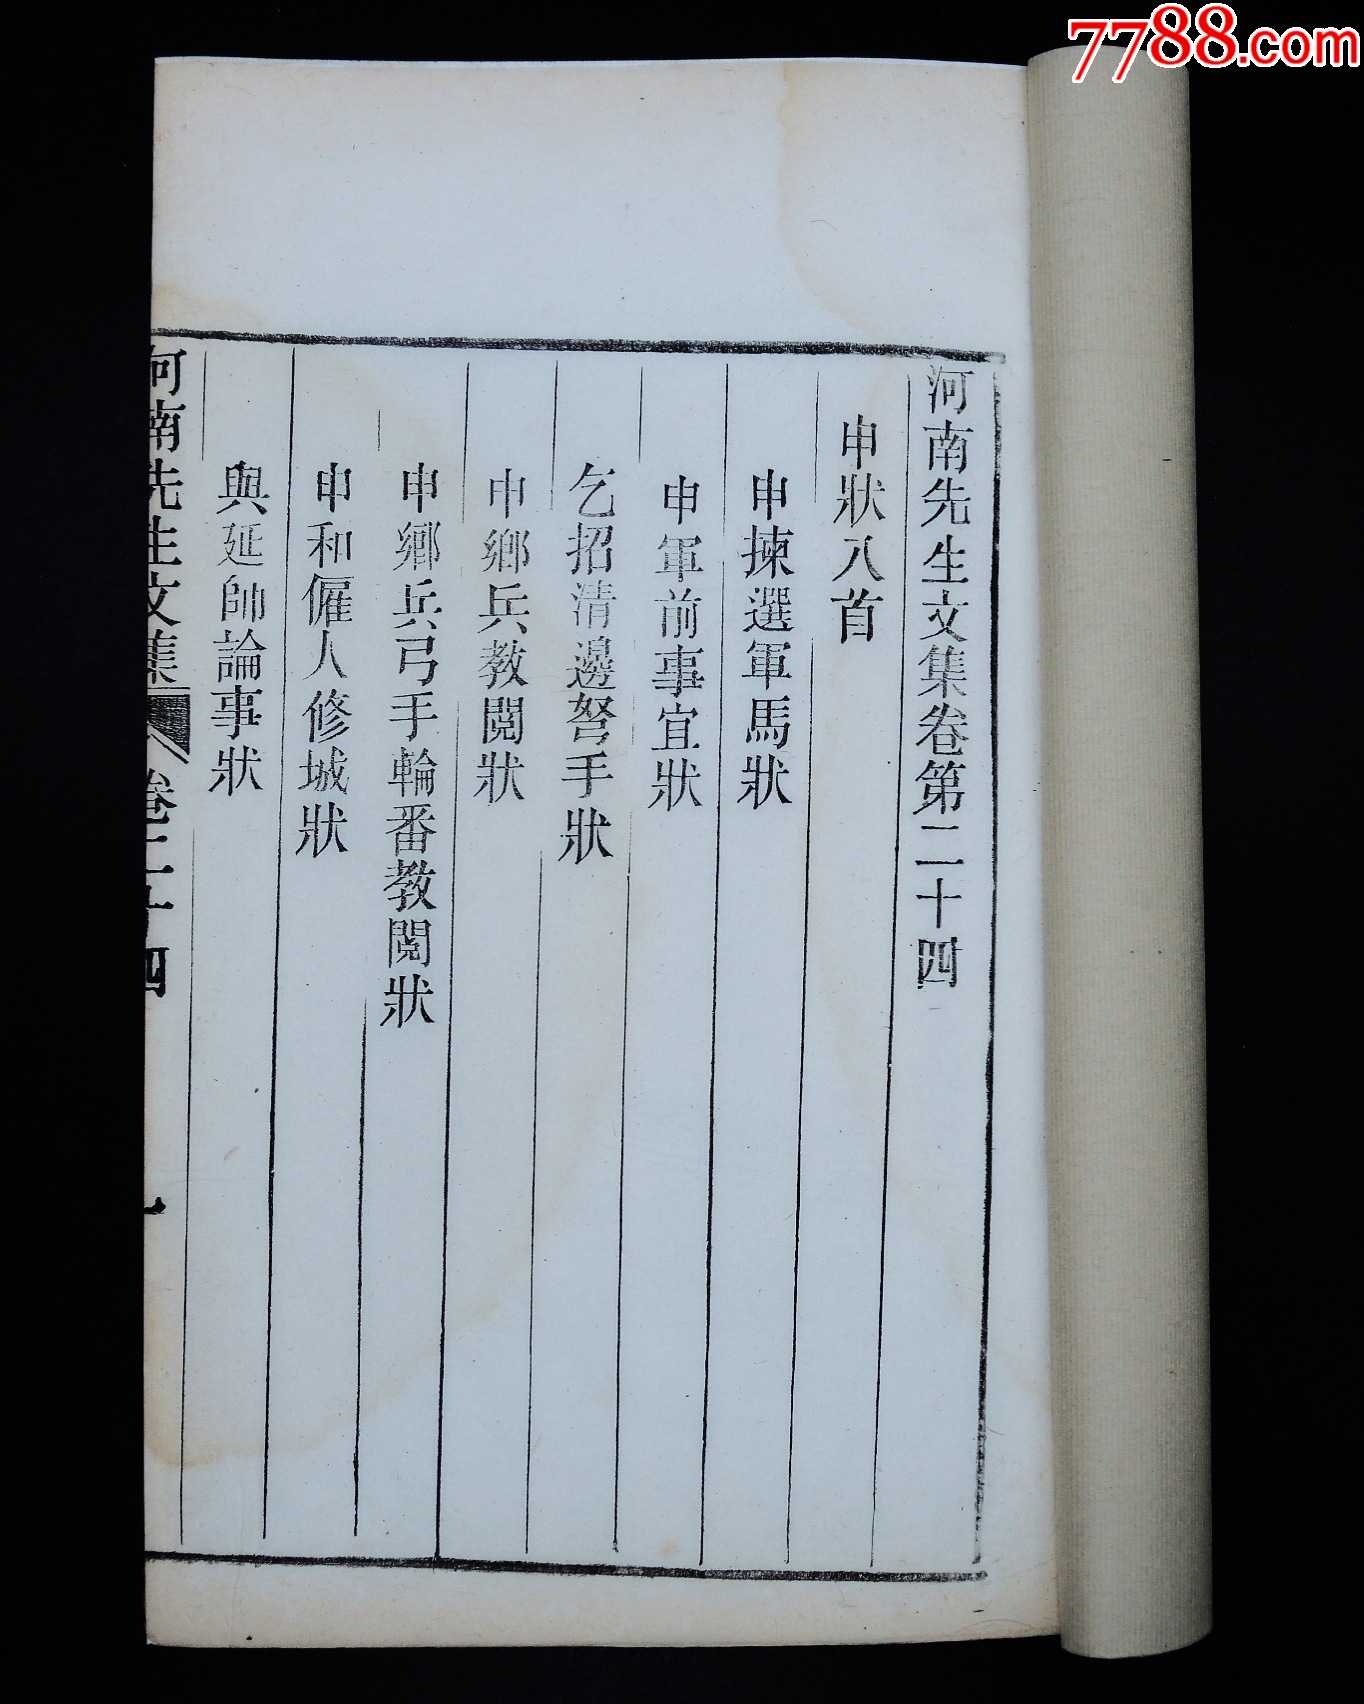 7788.com
河南先生文集卷第二十四
申狀八首
申揀選軍馬狀
申軍前事宜狀
乞招清邊弩手狀
申鄉兵教閱狀
申鄉兵弓手輪番教閱狀
申和僱人修城狀
與延帥論事狀
河南先生文集 卷二十四 一